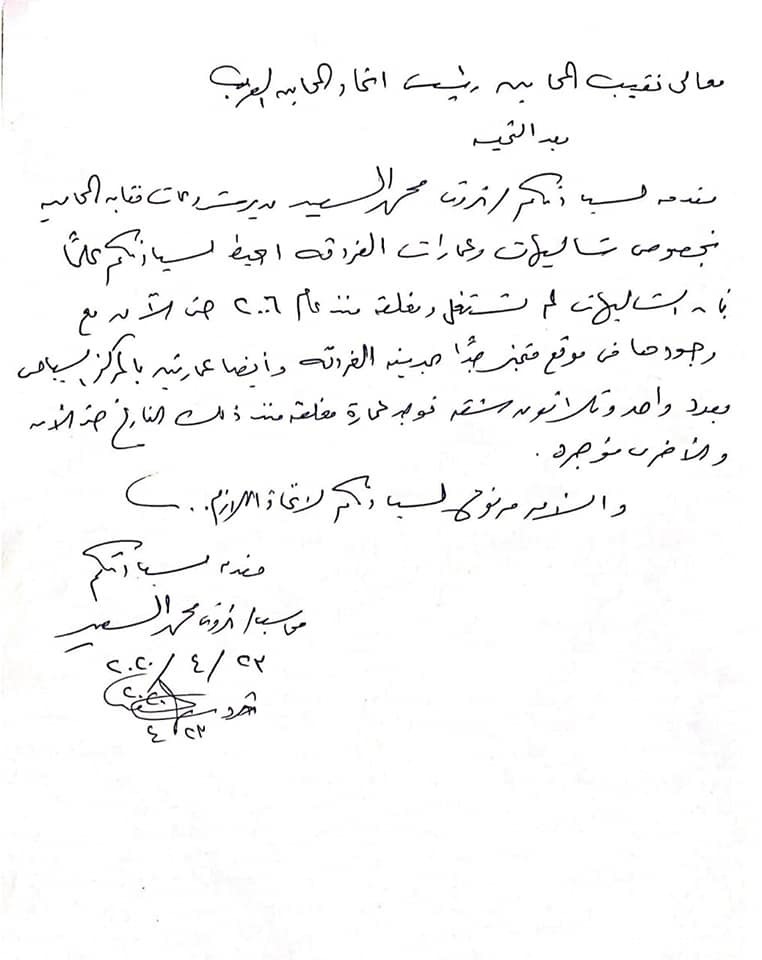 معالى نقيب المحامين رئيس اتحاد المحامين العرب
بعد التحية
مقدمه لسيادتكم / ثروت محمد السعيد مدير مشروعات نقابة المحامين
بخصوص شاليهات وعمارات الغردقه احيط لسيادتكم علماً
بأن الشاليهات لم تستغل ومغلقة منذ عام ٢٠٠٦ حتى الآن مع
وجودها فى موقع متميز جداً بمدينه الغردقه وأيضا عمارتين بالمركز السياحى
وبعدد واحد وثلاثون شقه توجد عمارة مغلقه منذ ذلك التاريخ حتى الآن
والأخرى مؤجره .
والأمر مرفوع لسيادتكم لاتخاذ اللازم ...
مقدمه لسيادتكم
محاسب / ثروت محمد السعيد
٢٣ / ٤ / ٢٠٢٠
٢٠٢٠
٢٣ ٤